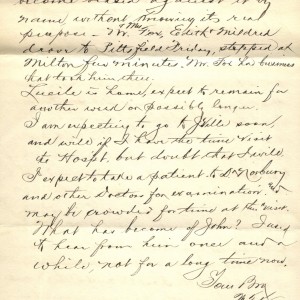 become biased against it by
name without knowing its real
purpose — Mr. & Mrs. Fox, Edith & Mildred
drove to Pittsfield Friday, stopped at
Milton few minutes. Mr. Fox has business
that took him there.
Lucile is home, expect to remain for
another week or possibly longer.
I am expecting to go J.Ville soon,
and will if I have the time visit
the Hospt. but doubt that I will.
I expect to take a patient to Dr Norbury
and other Doctors for examination and
may be crowded for time at this visit.
What has become of John? I used
to hear from him once and a
while, not for a long time now.
Your Bro